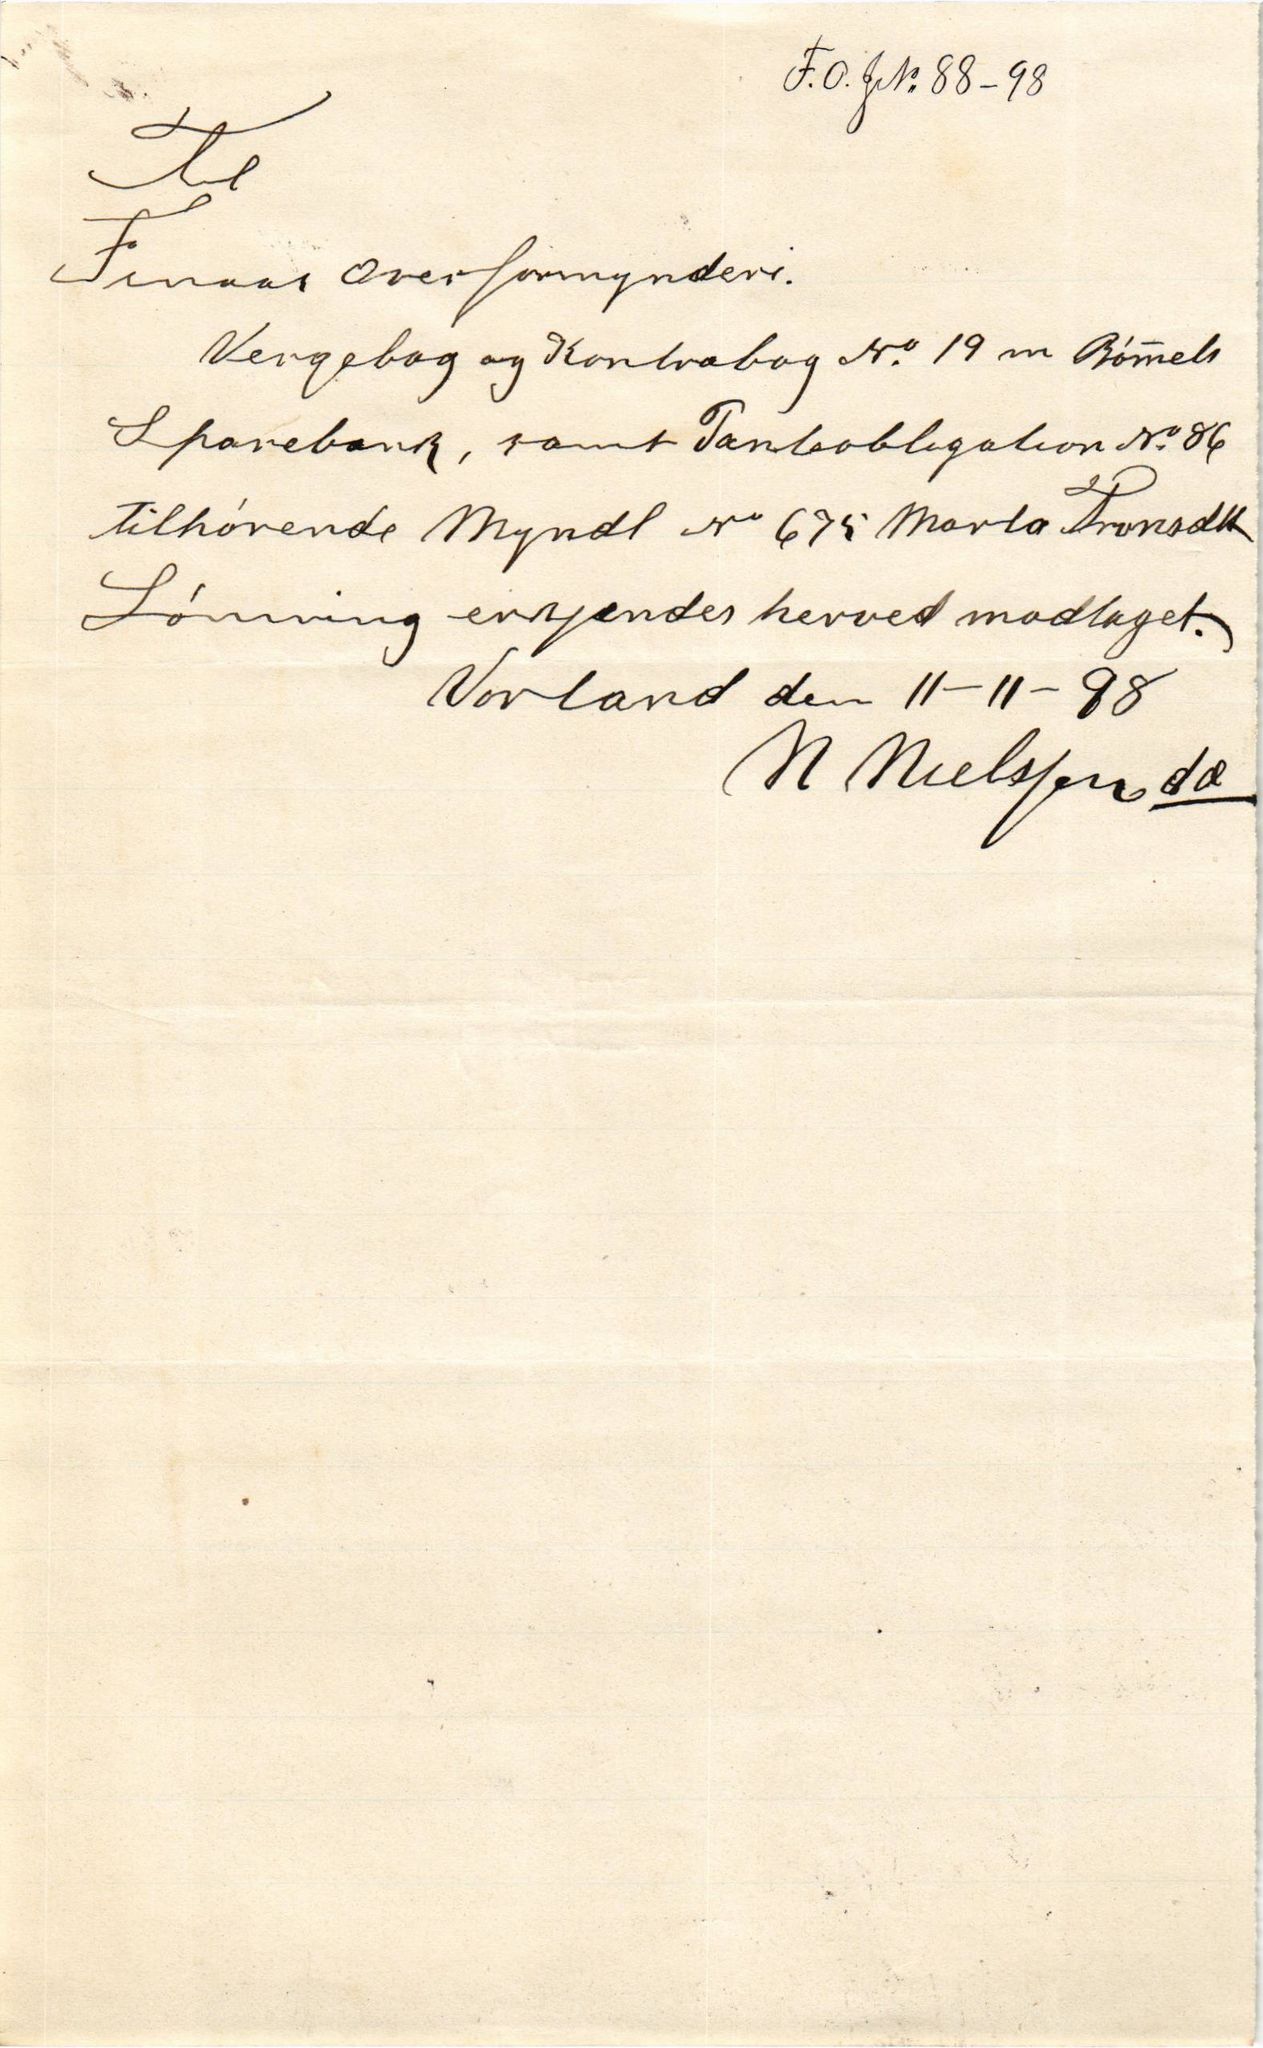 F.O.J.No. 88-98
Til
Finaas Overformynderi.
Vergebog og Kontrabog No. 19 m Bømels
Sparebank, samt Panteobligation No. 86
tilhørende Myndl No 675 Marta Tronsdtr
Lønning erkjendes herved modtaget.
Vorland den 11-11-98
N Nielssen